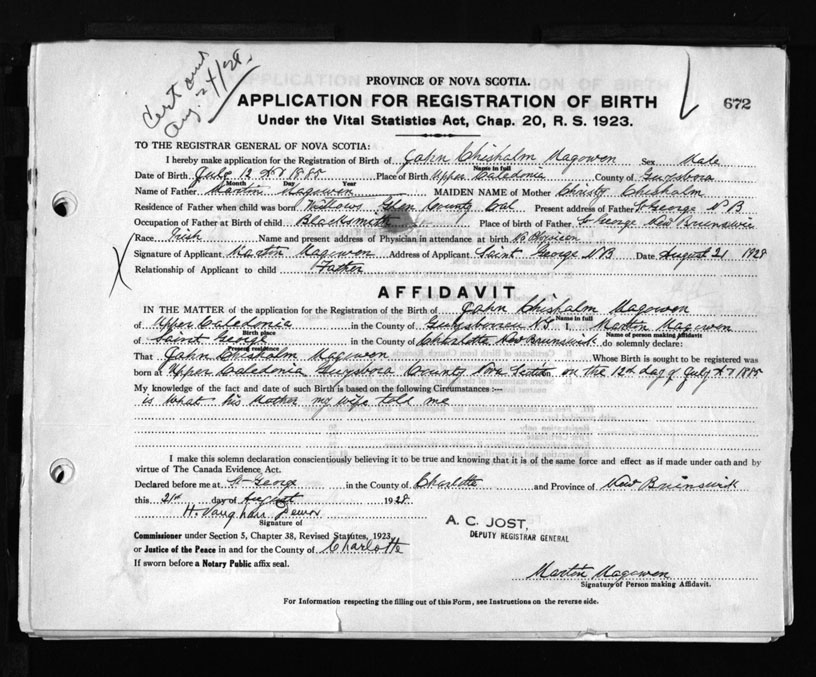 Cert sent
Aug. 24/28.
672
PROVINCE OF NOVA SCOTIA.
APPLICATION FOR REGISTRATION OF BIRTH
Under the Vital Statistics Act, Chap. 20, R. S. 1923.
TO THE REGISTRAR GENERAL OF NOVA SCOTIA:
I hereby make application for the Registration of Birth of John Chisholm Magowen Sex Male
Name in full
Date of Birth July 12 1885 Place of Birth Upper Caledonia County of Guysboro
Month Day Year
Name of Father Martin Magowen MAIDEN NAME of Mother Christy Chisholm
Residence of Father when child was born County Present address of Father St George N B
Occupation of Father at Birth of child Blacksmith Place of birth of Father St George New Brunswick
Race Irish Name and present address of Physician in attendance at birth
Signature of Applicant Martin Magowen Address of Applicant Saint George N B Date August 21 1928
Relationship of Applicant to child Father
AFFIDAVIT
IN THE MATTER of the application for the Registration of the Birth of John Chisholm Magowen
Name in full
of Upper Caledonia in the County of N S I, Martin Magowen
Birth place Name of person making Affidavit
of Saint George in the County of Charlotte New Brunswick do solemnly declare:
Present residence
That John Chisholm Magowen Whose Birth is sought to be registered was
born at Upper Caledonia Guysboro County Nova Scotia on the 12th day of July 1885
My knowledge of the fact and date of such Birth is based on the following Circumstances :—
is what his Mother my wife told me
I make this solemn declaration conscientiously believing it to be true and knowing that it is of the same force and effect as if made under oath and by
virtue of The Canada Evidence Act.
Declared before me at St George in the County of Charlotte and Province of New Brunswick
this 21st day of August 1928
H. Vaughan Dewar
Signature of
A. C. JOST,
DEPUTY REGISTRAR GENERAL
Commissioner under Section 5, Chapter 38, Revised Statutes, 1923,
or Justice of the Peace in and for the County of Charlotte
If sworn before a Notary Public affix seal.
Martin Magowen
Signature of Person making Affidavit.
For Information respecting the filling out of this Form, see Instructions on the reverse side.